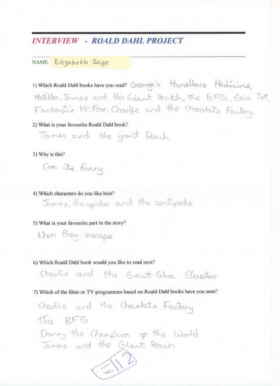 INTERVIEW - ROALD DAHL PROJECT
NAME: Elizabeth
1) Which Roald Dahl books have you read? George's Marvellous Medicine,
Matilda, James and the Giant Peach, the BFG,
Fantastic Mr Fox, Charlie and the Chocolate Factory
2) What is your favourite Roald Dahl book?
James and the giant Peach
3) Why is this?
its funny
4) Which characters do you like best?
James, and the centipede
5) What is your favourite part in the story?
When they escape
6) Which Roald Dahl book would you like to read next?
Charlie and the Great Glass Elevator
7) Which of the films or TV programmes based on Roald Dahl books have you seen?
Charlie and the Chocolate Factory
The BFG
Danny the Champion of the World
James and the Giant Peach